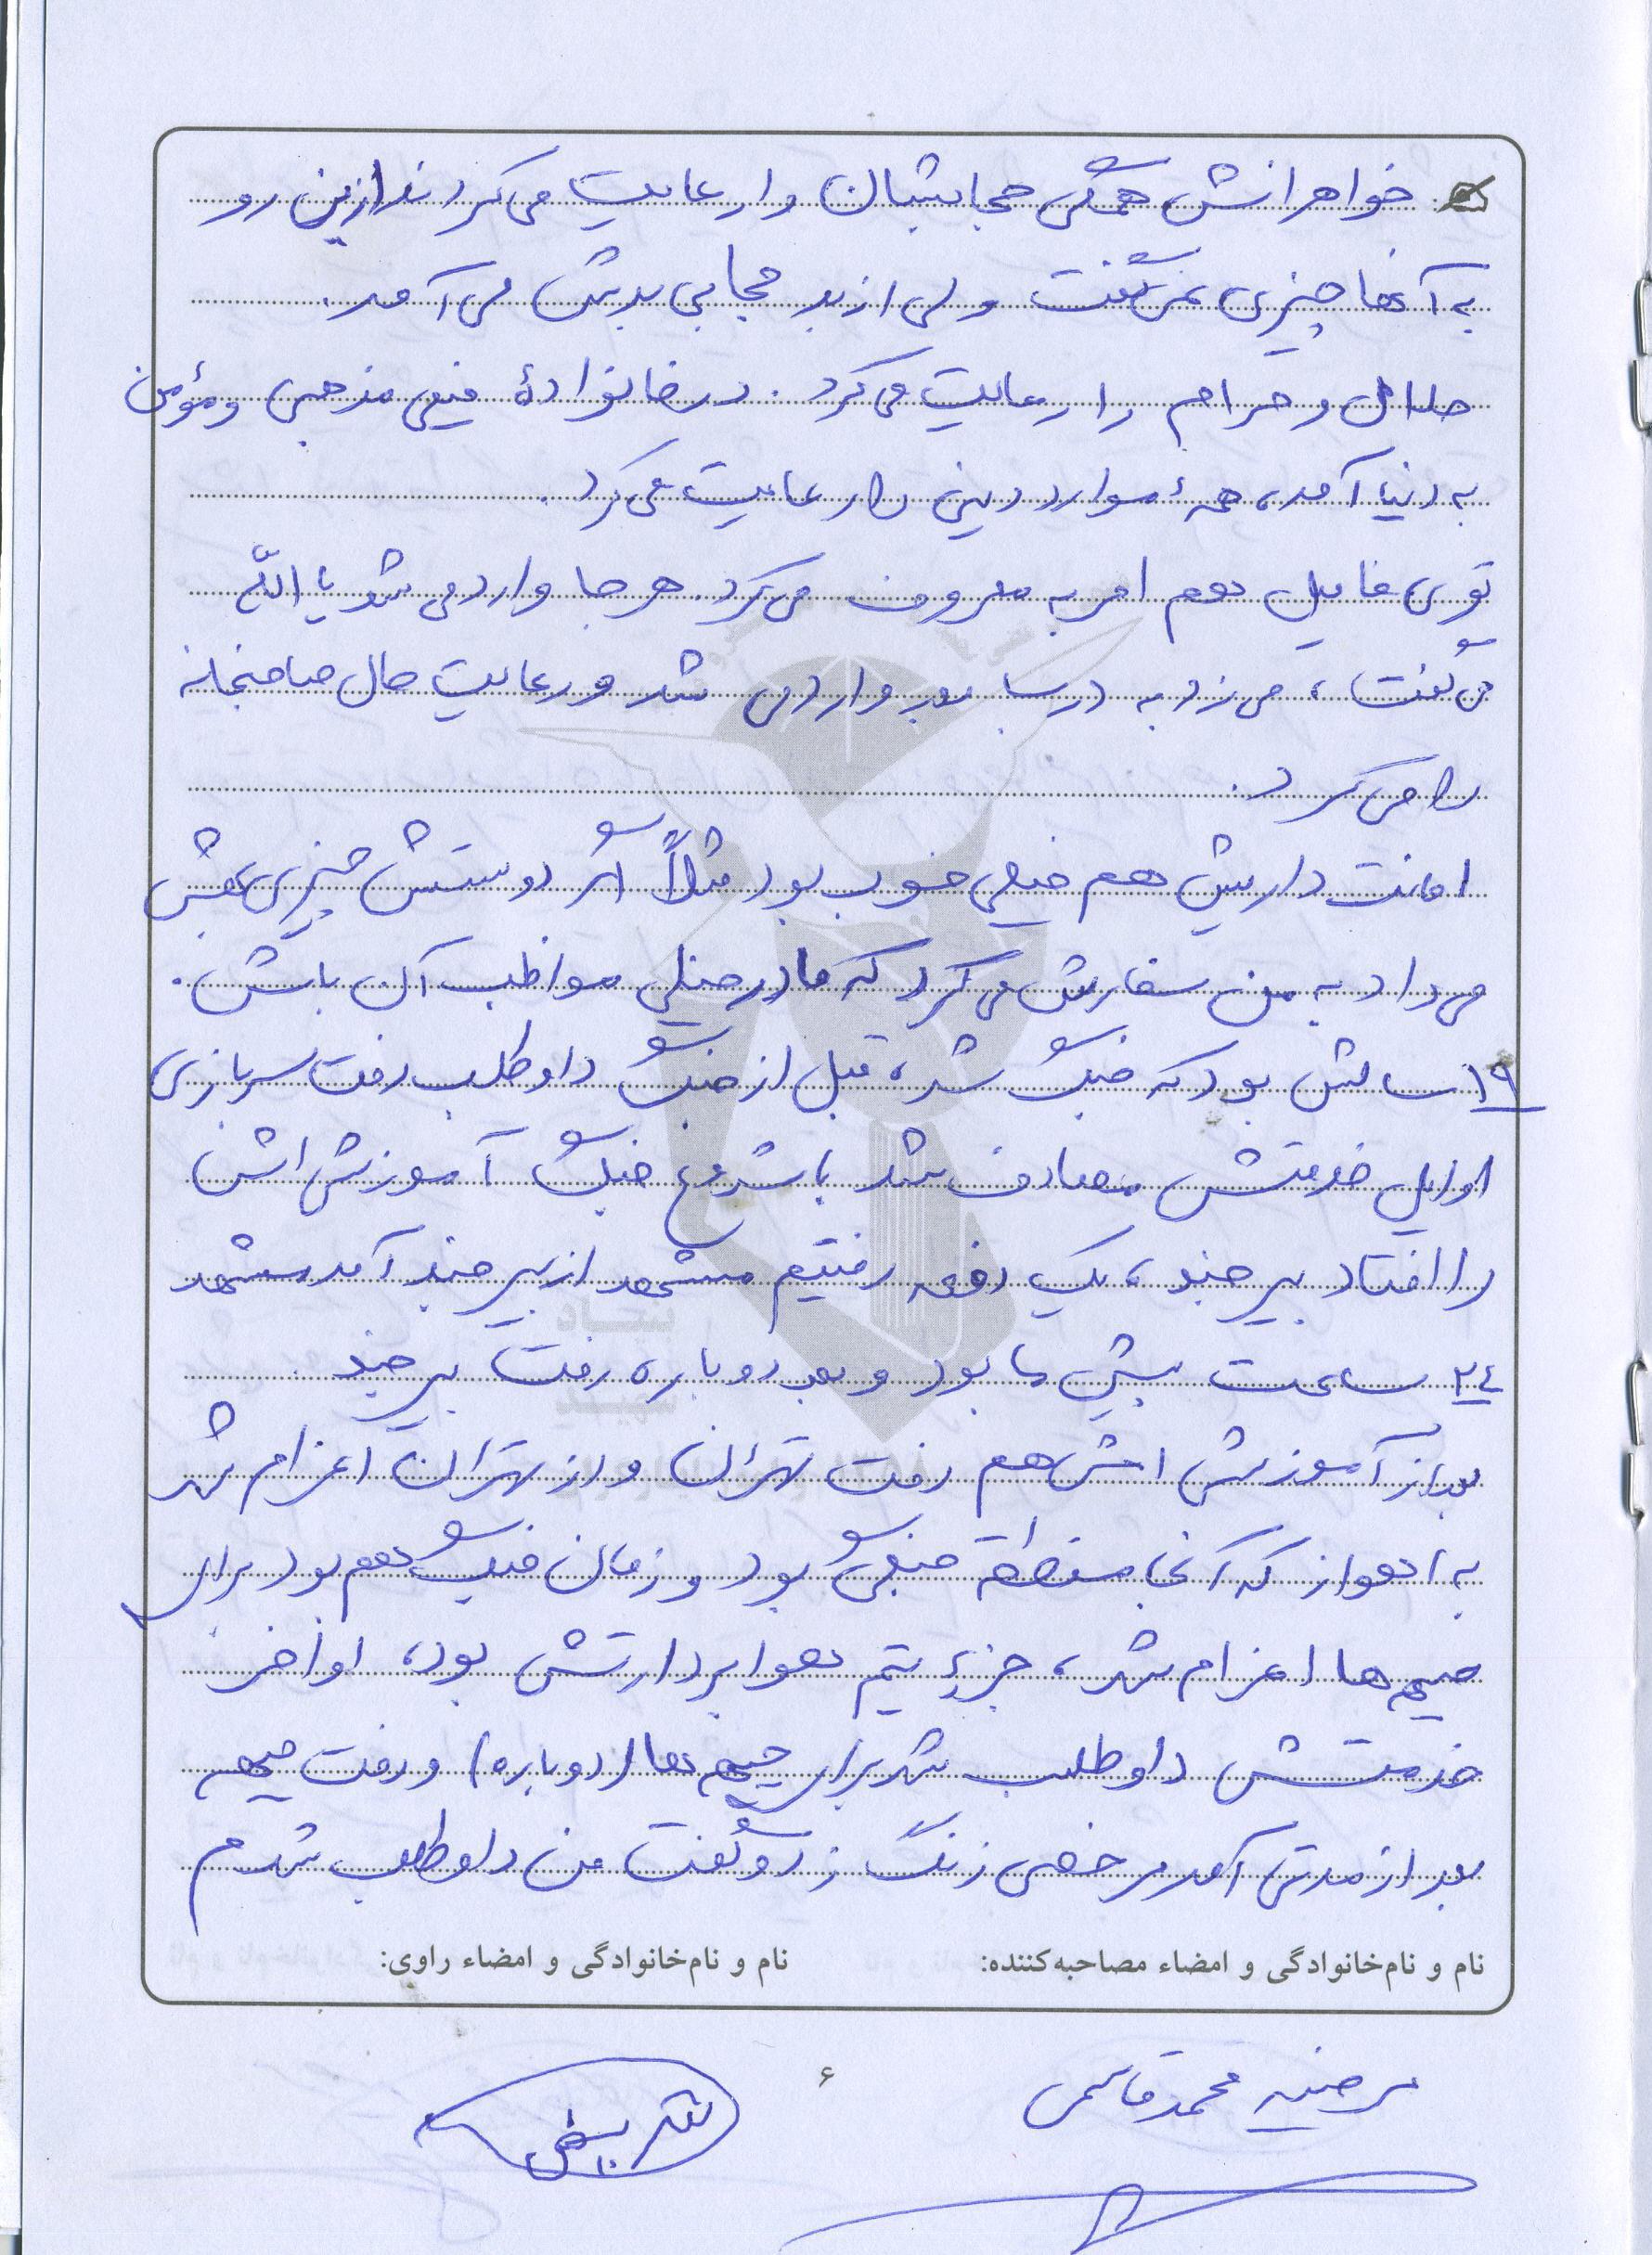 خواهرانش همگی حجابشان را رعایت می‌کردند از این رو
به آنها چیزی نمی‌گفت ولی از بد حجابی بدش می‌آمد.
حلال و حرام را رعایت می‌کرد. در خانوادهٔ خیلی مذهبی و مؤمن
به دنیا آمد، همهٔ موارد دینی را رعایت می‌کرد.
توی فامیل هم امر به معروف می‌کرد. هر جا وارد می‌شد یا الله
می‌گفت، می‌زد به در بعد وارد می‌شد و رعایت حال صاحبخانه
را می‌کرد.
امانت داریش هم خیلی خوب بود مثلاً اگر دوستش چیزی بهش
می‌داد به من سفارش می‌کرد که مادر خیلی مواظب آن باش.
۱۹ سالش بود که جنگ شد، قبل از جنگ داوطلب رفت سربازی
اوایل خدمتش مصادف شد با شروع جنگ آموزشی اش
را افتاد بیرجند، یک دفعه رفتیم مشهد از بیرجند آمد مشهد
۲۴ ساعت پیش ما بود و بعد دوباره رفت بیرجند.
بعد از آموزشی اش هم رفت تهران و از تهران اعزام شد
به اهواز که آنجا منطقه جنگی بود و زمان جنگ هم بود برای
جبهه‌ها اعزام شد، جزء تیم هوابرد ارتش بود، اواخر
خدمتش داوطلب شد برای جبهه‌ها (دوباره) و رفت جبهه
بعد از مدتی آمد مرخصی زنگ زد و گفت من داوطلب شدم
نام و نام‌خانوادگی و امضاء مصاحبه‌کننده: نام و نام‌خانوادگی و امضاء راوی:
مرضیه محمدقاسمی
۶